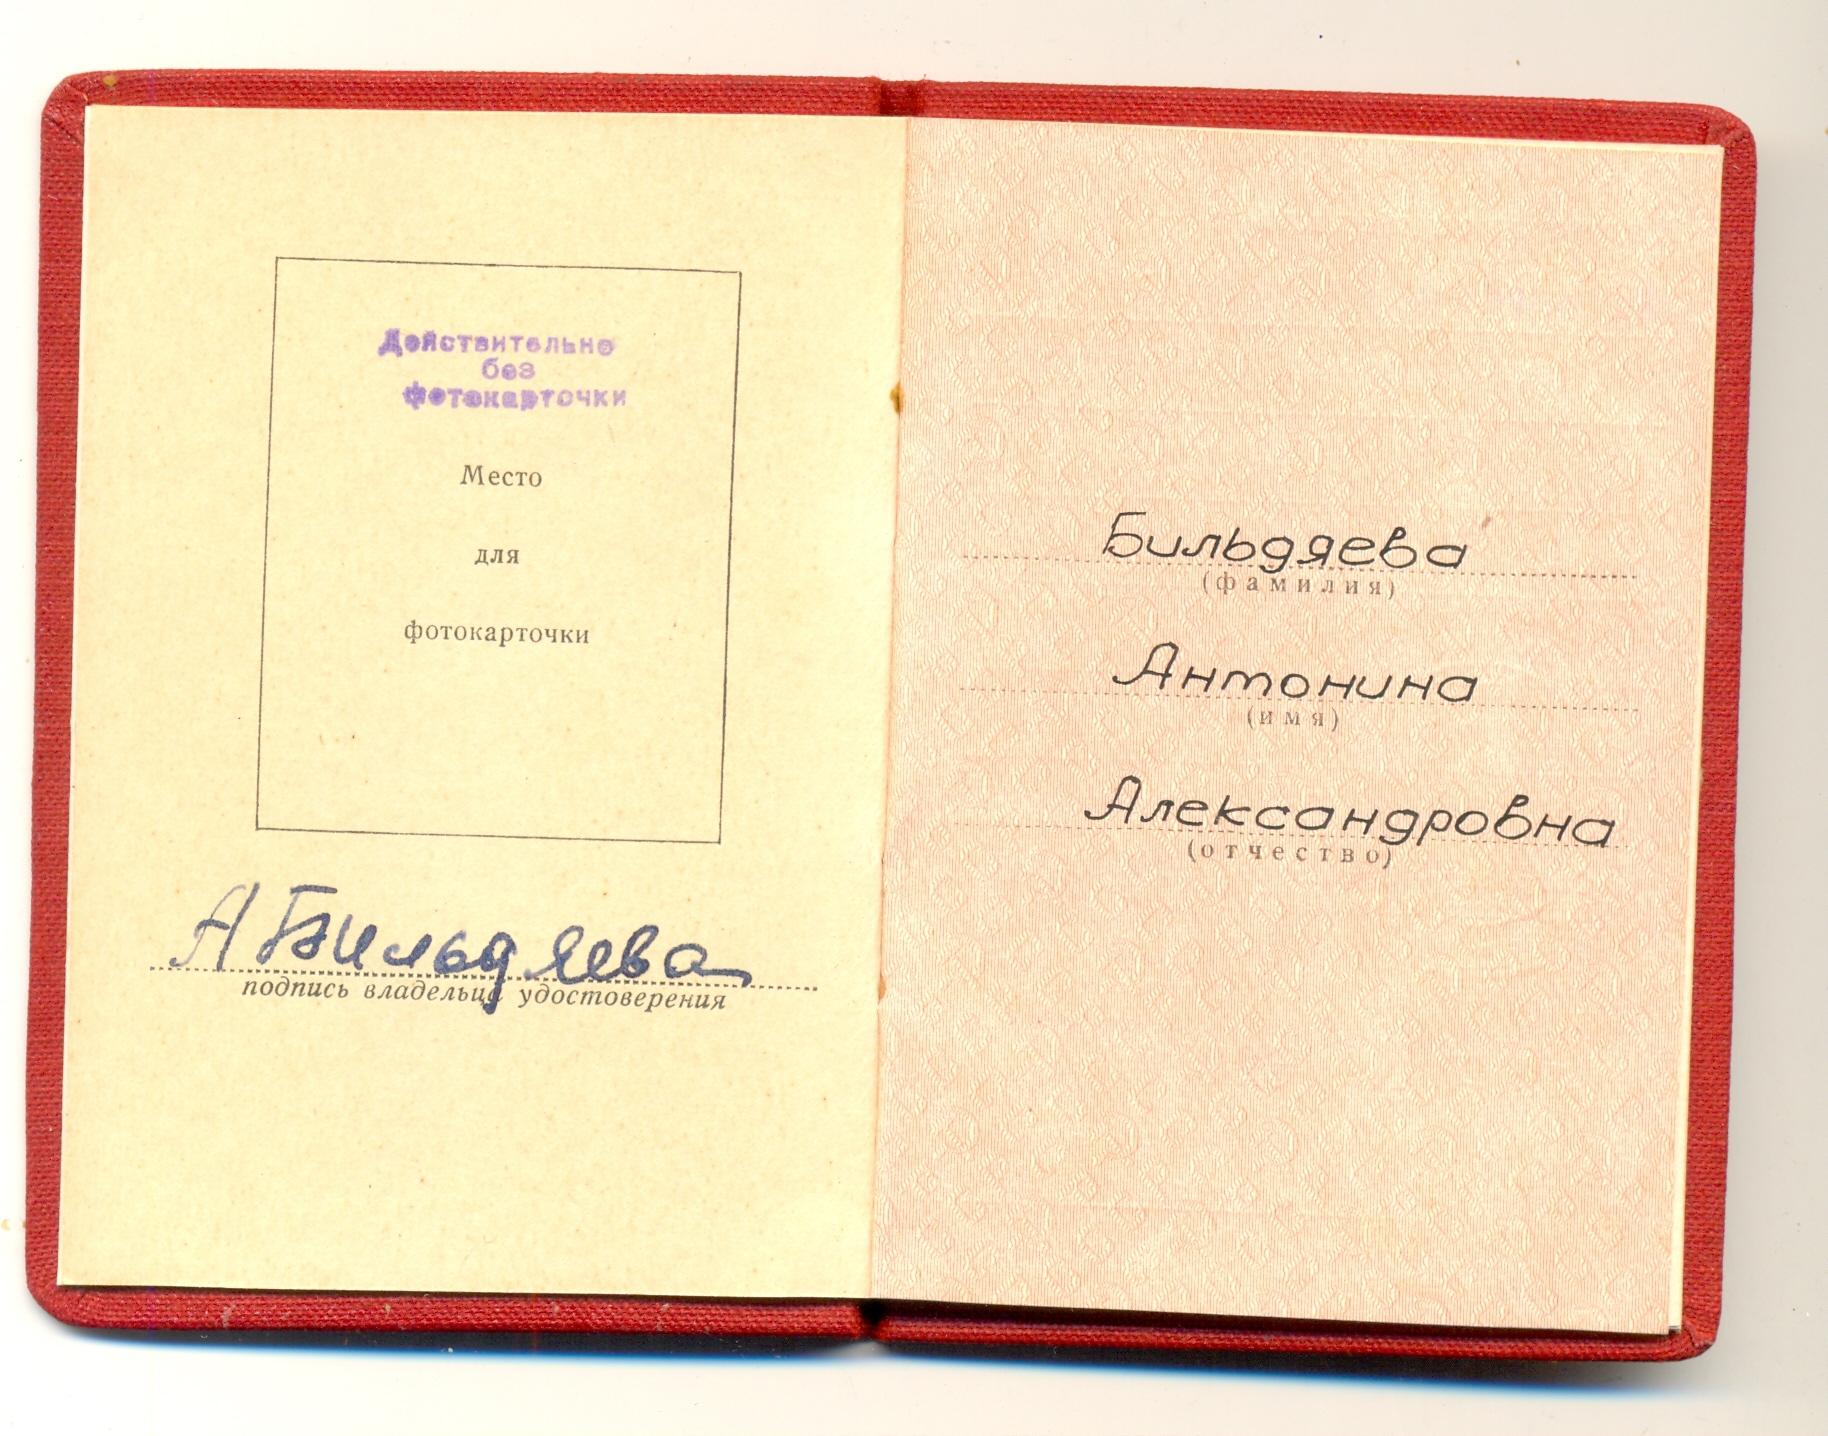 Действительно
без
фотокарточки
Место
для
фотокарточки
А Бильдяева
подпись владельца удостоверения
Бильдяева
(фамилия)
Антонина
(имя)
Александровна
(отчество)